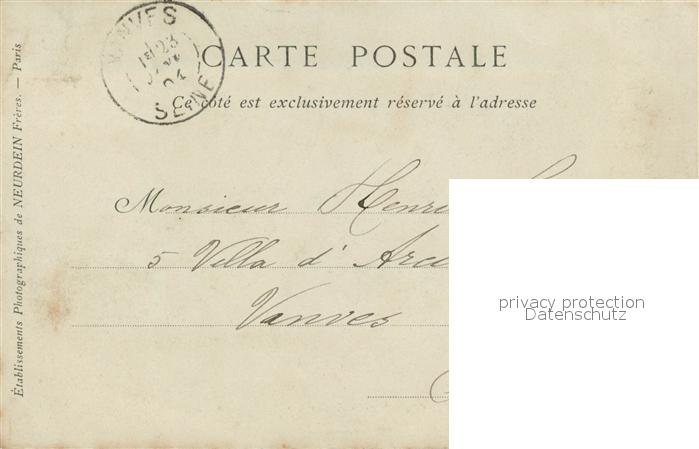 VANVES
1E 23
04
SEINE
CARTE POSTALE
Ce côté est exclusivement réservé à l'adresse
Monsieur Henri
5 Villa d'
Vanves
privacy protection
Datenschutz
Établissements Photographiques de NEURDEIN Frères. — Paris